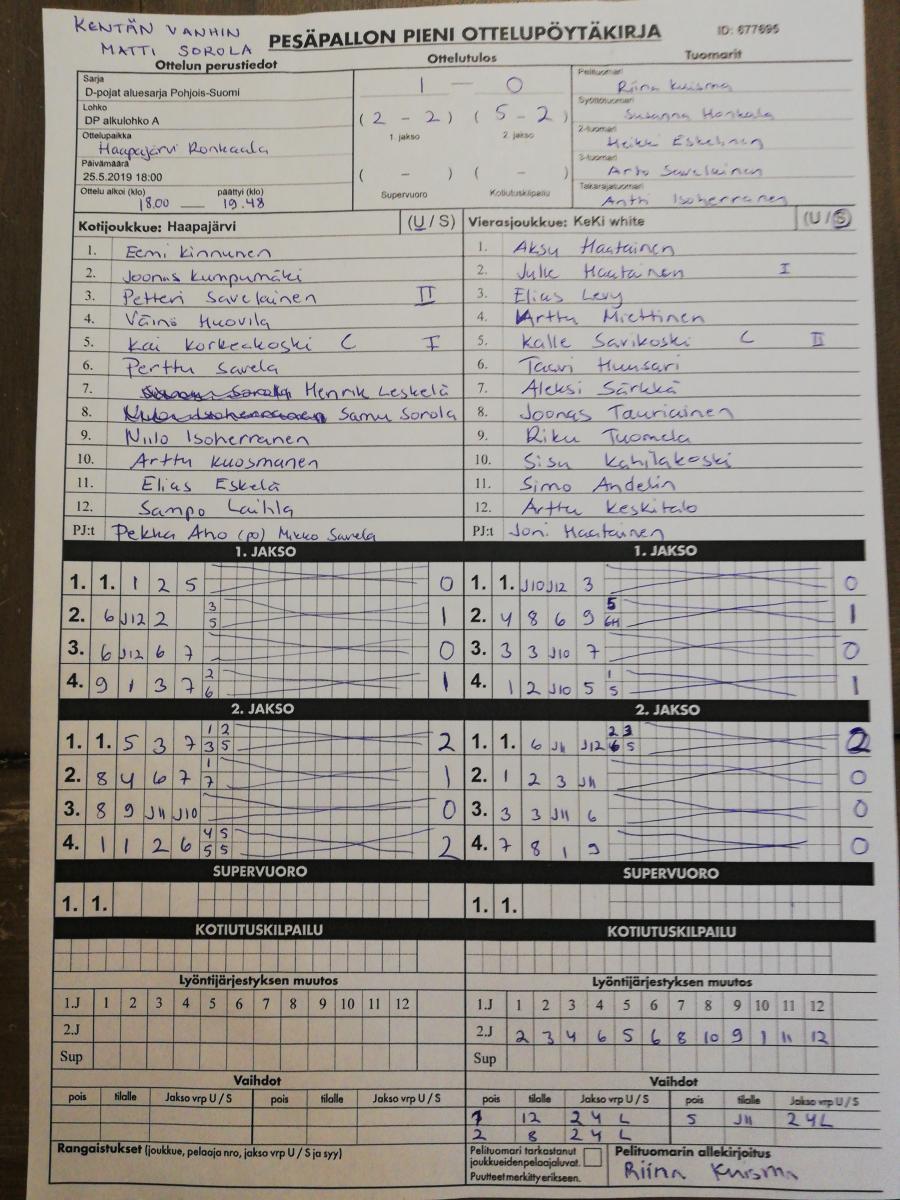 KENTÄN VANHIN
MATTI SOROLA
PESÄPALLON PIENI OTTELUPÖYTÄKIRJA
ID: 677695
Ottelun perustiedot
Sarja
D-pojat aluesarja Pohjois-Suomi
Lohko
DP alkulohko A
Ottelupaikka
Haapajärvi Ronkaala
Päivämäärä
25.5.2019 18:00
Ottelu alkoi (klo) päättyi (klo)
18.00 — 19.48
Ottelutulos
1 — 0
(2 - 2) (5 - 2)
1. jakso 2. jakso
( - ) ( - )
Supervuoro Kotiutuskilpailu
Tuomarit
Pelituomari
Riina Kuisma
Syöttötuomari
Susanna Honkala
2-tuomari
Heikki Eskelinen
3-tuomari
Arto Savelainen
Takarajatuomari
Antti Isoherranen
Kotijoukkue: Haapajärvi (U / S)
1. Eemi Kinnunen
2. Joonas Kumpumäki
3. Petteri Savelainen II
4. Väinö Huovila
5. Kai Korkeakoski C I
6. Perttu Savela
7. Henrik Leskelä
8. Samu Sorola
9. Niilo Isoherranen
10. Arttu Kuosmanen
11. Elias Eskelä
12. Sampo Laihla
PJ:t Pekka Aho (po) Mikko Savela
Vierasjoukkue: KeKi white (U / S)
1. Aksu Haatainen
2. Julle Haatainen I
3. Elias Levy
4. Arttu Miettinen
5. Kalle Savikoski C II
6. Taavi Huusari
7. Aleksi Särkkä
8. Joonas Tauriainen
9. Riku Tuomela
10. Sisu Kahilakoski
11. Simo Andelin
12. Arttu Keskitalo
PJ:t Joni Haatainen
1. JAKSO
1. 1. 1 2 5 0
2. 6 J12 2 3 5 1
3. 6 J12 6 7 0
4. 9 1 3 7 2 6 1
2. JAKSO
1. 1. 5 3 7 1 2 3 5 2
2. 8 4 6 7 1 7 1
3. 8 9 J11 J10 0
4. 1 1 2 6 4 5 5 5 2
SUPERVUORO
1. 1.
KOTIUTUSKILPAILU
Lyöntijärjestyksen muutos
1.J 1 2 3 4 5 6 7 8 9 10 11 12
2.J
Sup
Vaihdot
pois tilalle Jakso vrp U / S pois tilalle Jakso vrp U / S
Rangaistukset (joukkue, pelaaja nro, jakso vrp U / S ja syy)
1. JAKSO
1. 1. J10 J12 3 0
2. 4 8 6 9 5 6H 1
3. 3 3 J10 7 0
4. 1 2 J10 5 1 5 1
2. JAKSO
1. 1. 6 J11 J12 2 3 6 5 2
2. 1 2 3 J11 0
3. 3 3 J11 6 0
4. 7 8 1 9 0
SUPERVUORO
1. 1.
KOTIUTUSKILPAILU
Lyöntijärjestyksen muutos
1.J 1 2 3 4 5 6 7 8 9 10 11 12
2.J 2 3 4 6 5 6 8 10 9 1 11 12
Sup
Vaihdot
pois tilalle Jakso vrp U / S pois tilalle Jakso vrp U / S
1 12 2 4 L 5 J11 2 4 L
2 8 2 4 L
Pelituomari tarkastanut
joukkueiden pelaajaluvat.
Puutteet merkitty erikseen.
Pelituomarin allekirjoitus
Riina Kuisma